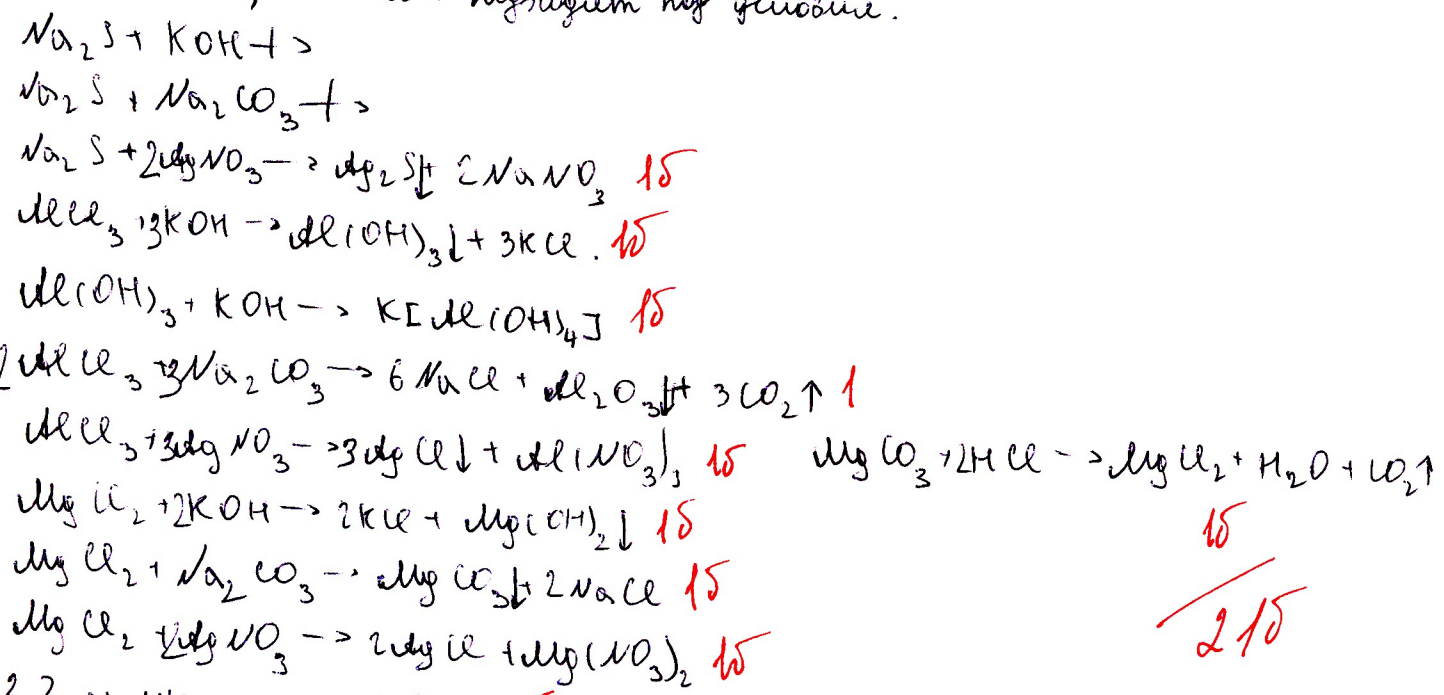 под условие.
Na₂S + KOH -/->
Na₂S + Na₂CO₃ -/->
Na₂S + 2AgNO₃ -> Ag₂S↓ + 2NaNO₃ 1б
AlCl₃ + 3KOH -> Al(OH)₃↓ + 3KCl. 1б
Al(OH)₃ + KOH -> K[Al(OH)₄] 1б
2AlCl₃ + 3Na₂CO₃ -> 6NaCl + Al₂O₃↓ + 3CO₂↑ 1
AlCl₃ + 3AgNO₃ -> 3AgCl↓ + Al(NO₃)₃ 1б MgCO₃ + 2HCl -> MgCl₂ + H₂O + CO₂↑
MgCl₂ + 2KOH -> 2KCl + Mg(OH)₂↓ 1б 1б
MgCl₂ + Na₂CO₃ -> MgCO₃↓ + 2NaCl 1б
MgCl₂ + 2AgNO₃ -> 2AgCl + Mg(NO₃)₂ 1б 21б